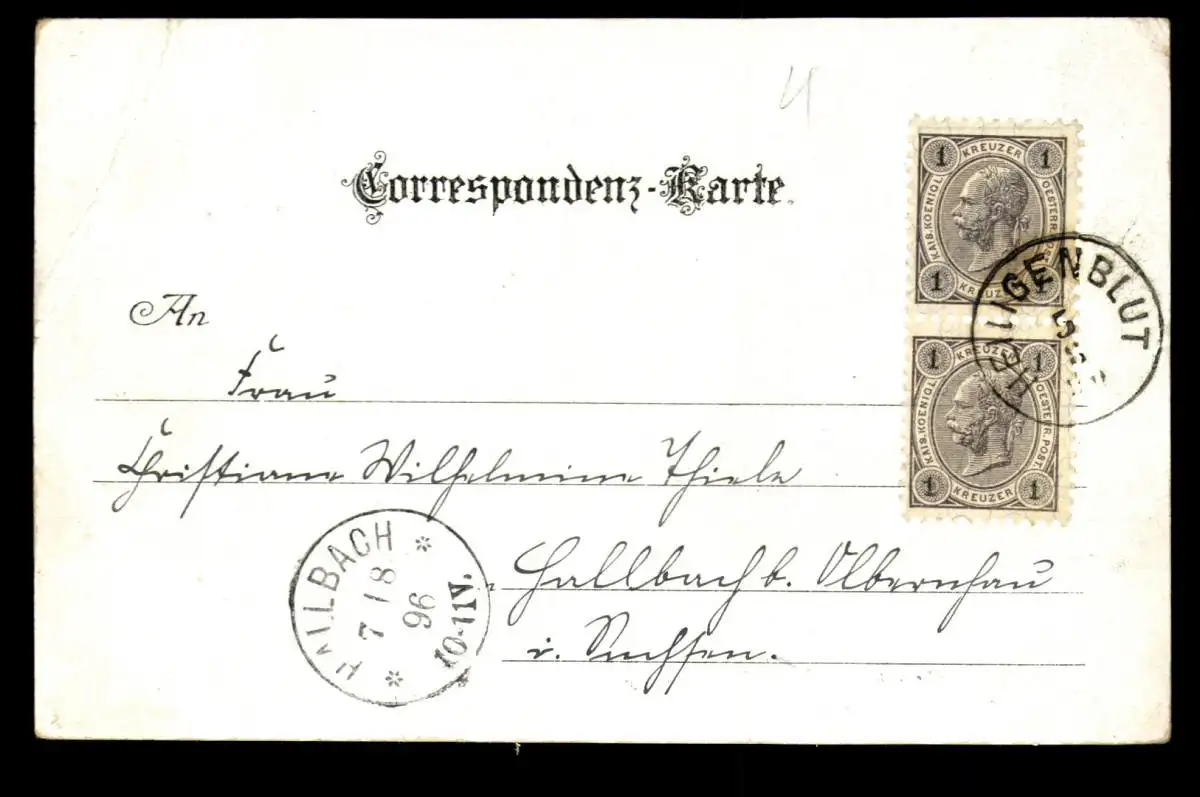 4
Correspondenz-Karte.
1 KREUZER 1
KAIS. KOENIGL. OESTERR. POST.
1 KREUZER 1
HEILIGENBLUT
1 KREUZER 1
KAIS. KOENIGL. OESTERR. POST.
1 KREUZER 1
An
Frau
Christiane Wilhelmine Thiele
Hallbach b. Olbernhau
i. Sachsen.
HALLBACH
7 18
96
10-11V.